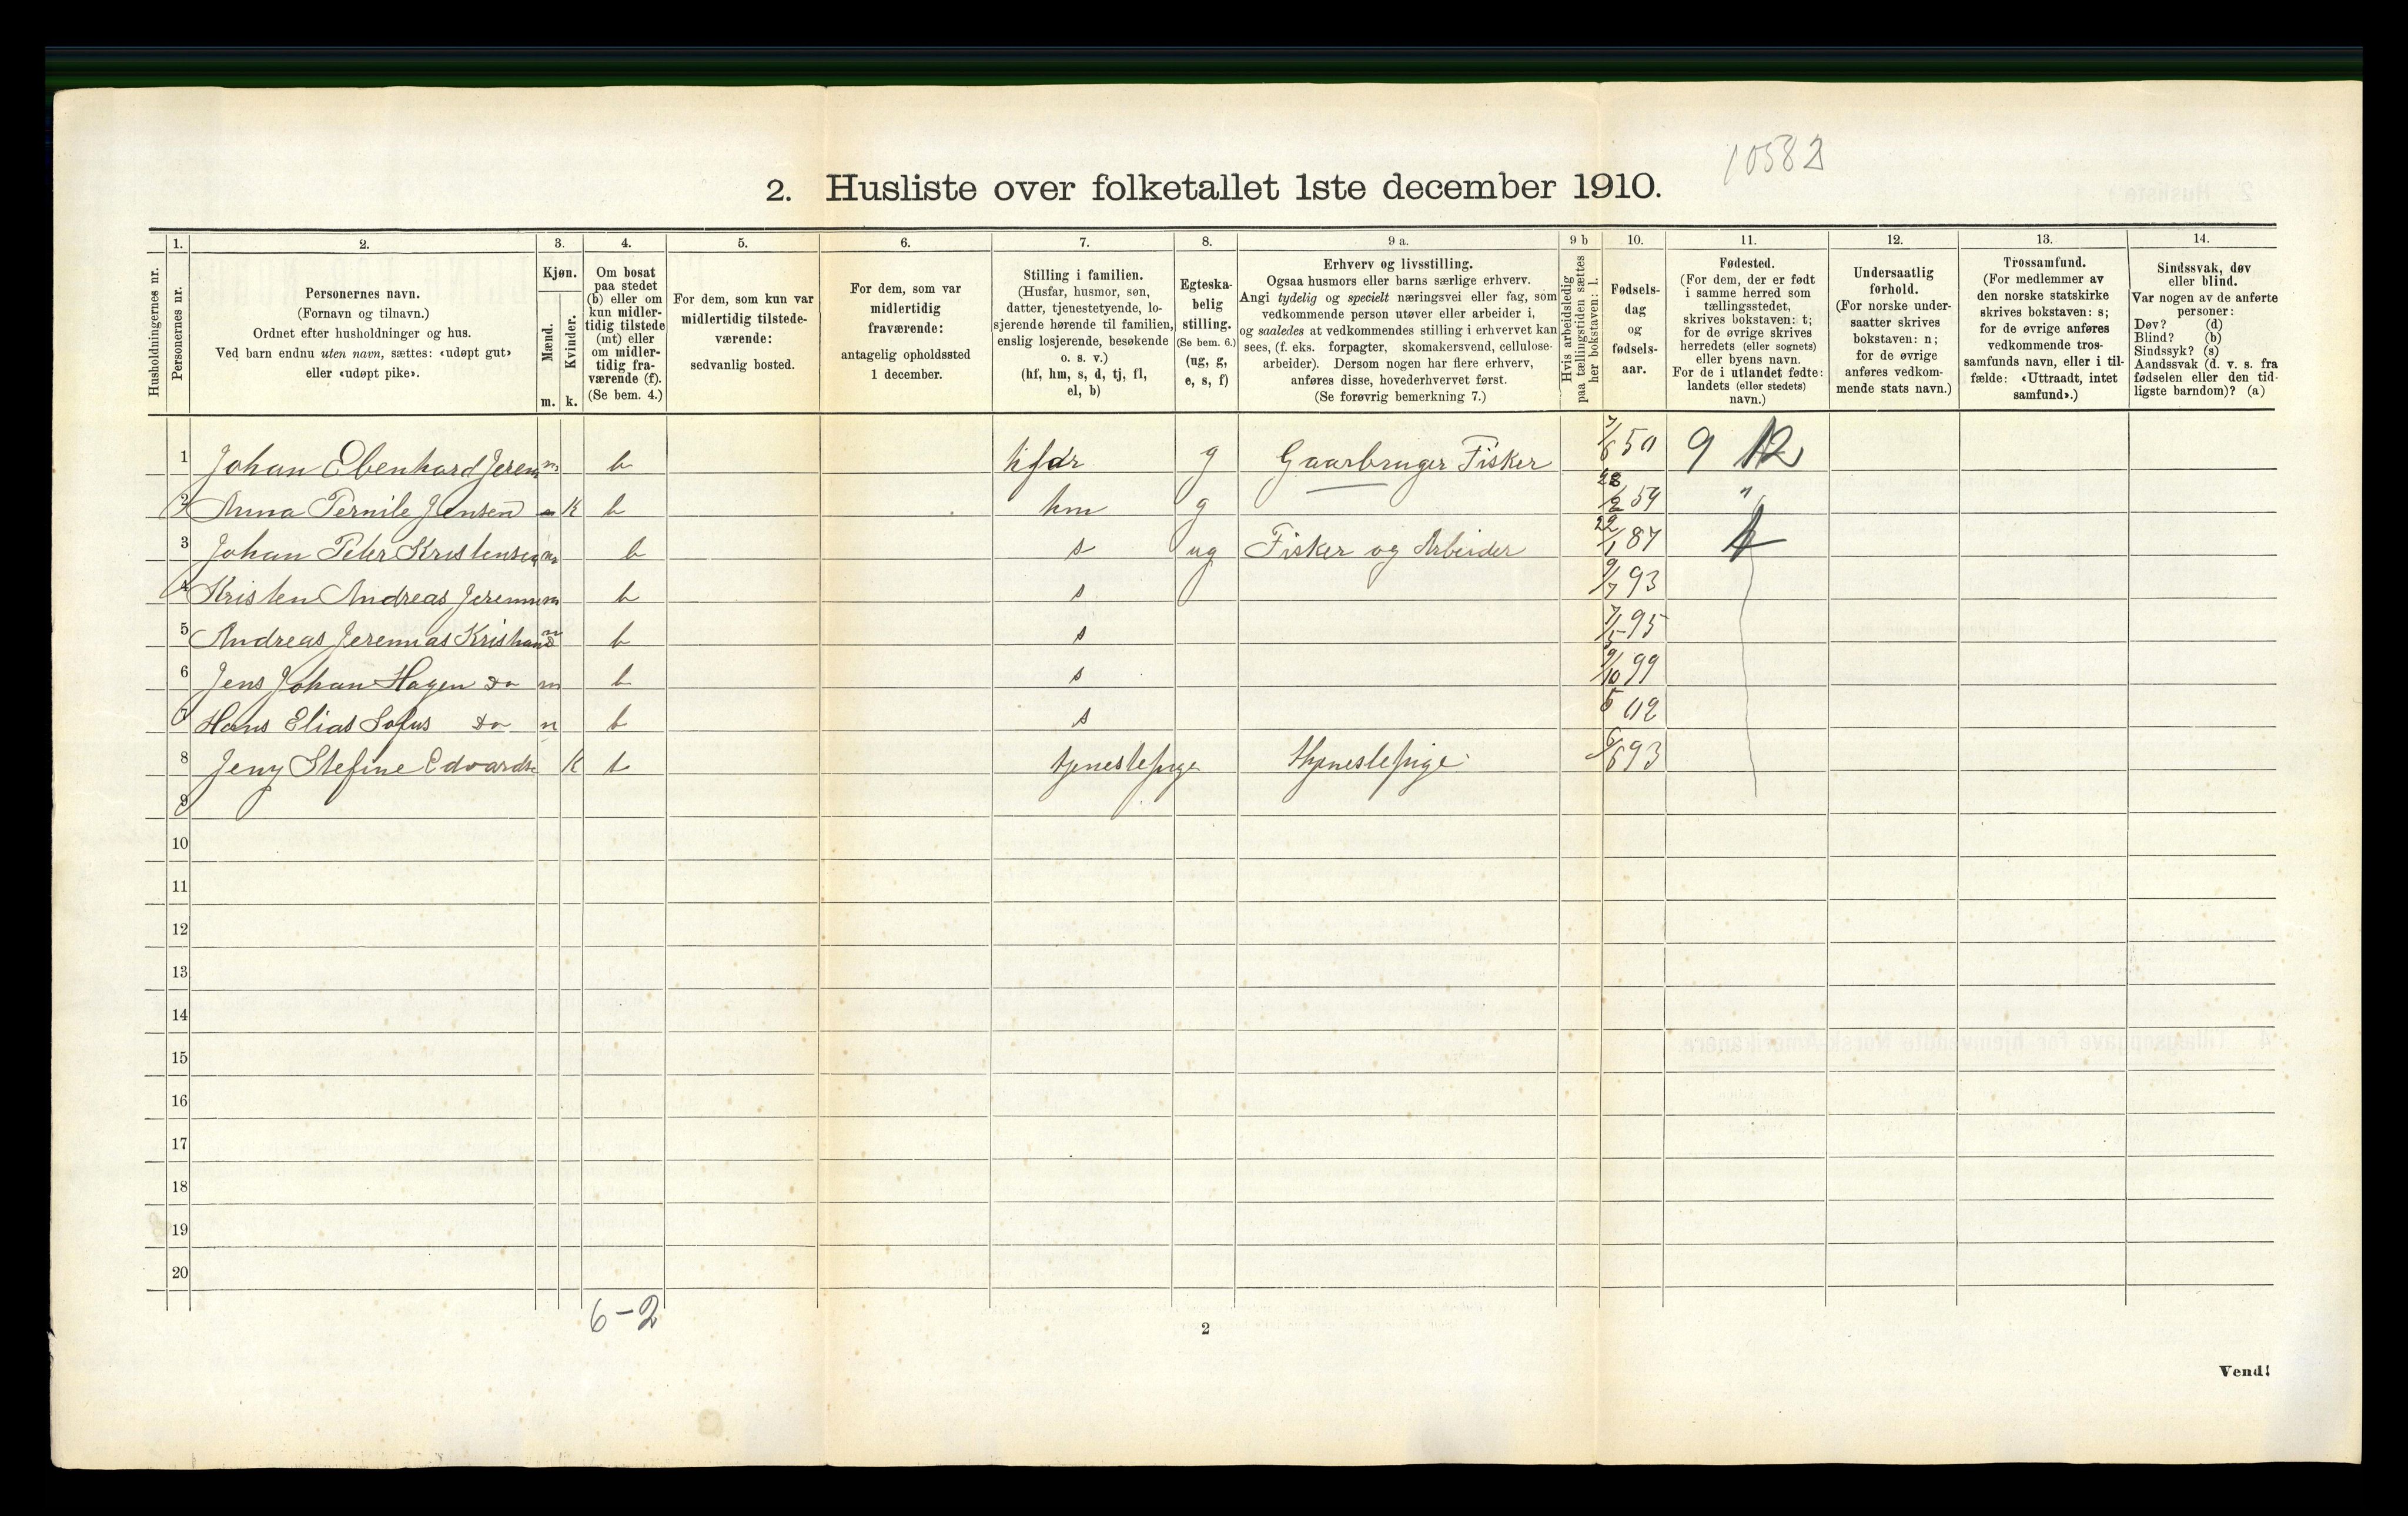 10582
2. Husliste over folketallet 1ste december 1910.
Husholdningernes nr.
1.
Personernes nr.
2.
Personernes navn.
(Fornavn og tilnavn.)
Ordnet efter husholdninger og hus.
Ved barn endnu uten navn, sættes: «udøpt gut»
eller «udøpt pike».
3.
Kjøn.
Mænd.
Kvinder.
m. k.
4.
Om bosat
paa stedet
(b) eller om
kun midler-
tidig tilstede
(mt) eller
om midler-
tidig fra-
værende (f).
(Se bem. 4.)
5.
For dem, som kun var
midlertidig tilstede-
værende:
sedvanlig bosted.
6.
For dem, som var
midlertidig
fraværende:
antagelig opholdssted
1 december.
7.
Stilling i familien.
(Husfar, husmor, søn,
datter, tjenestetyende, lo-
sjerende hørende til familien,
enslig losjerende, besøkende
o. s. v.)
(hf, hm, s, d, tj, fl,
el, b)
8.
Egteska-
belig
stilling.
(Se bem. 6.)
(ug, g,
e, s, f)
9 a.
Erhverv og livsstilling.
Ogsaa husmors eller barns særlige erhverv.
Angi tydelig og specielt næringsvei eller fag, som
vedkommende person utøver eller arbeider i,
og saaledes at vedkommendes stilling i erhvervet kan
sees, (f. eks. forpagter, skomakersvend, cellulose-
arbeider). Dersom nogen har flere erhverv,
anføres disse, hovederhvervet først.
(Se forøvrig bemerkning 7.)
9 b
Hvis arbeidsledig
paa tællingstiden sættes
her bokstaven: l.
10.
Fødsels-
dag
og
fødsels-
aar.
11.
Fødested.
(For dem, der er født
i samme herred som
tællingsstedet,
skrives bokstaven: t;
for de øvrige skrives
herredets (eller sognets)
eller byens navn.
For de i utlandet fødte:
landets (eller stedets)
navn.)
12.
Undersaatlig
forhold.
(For norske under-
saatter skrives
bokstaven: n;
for de øvrige
anføres vedkom-
mende stats navn.)
13.
Trossamfund.
(For medlemmer av
den norske statskirke
skrives bokstaven: s;
for de øvrige anføres
vedkommende tros-
samfunds navn, eller i til-
fælde: «Uttraadt, intet
samfund».)
14.
Sindssvak, døv
eller blind.
Var nogen av de anførte
personer:
Døv? (d)
Blind? (b)
Sindssyk? (s)
Aandssvak (d. v. s. fra
fødselen eller den tid-
ligste barndom)? (a)
1 Johan Ebenhard Jerem m b hfdr g Gaarbruger Fisker 7/6 50 9 12
2 Anna Pernile Jensen K b hm g 28/2 59 "
3 Johan Peter Kristensen m b s ug Fisker og Arbeider 22/1 87 t
4 Kristen Andreas m b s 9/7 93
5 Andreas Jeremias m b s 7/5 95
6 Jens Johan Hagen do m b s 9/10 99
7 Hans Elias Sofus do m b s 02
8 Jeny Stefine Edvards K b tjenestepige tjenestepige 6/6 93
9
10
11
12
13
14
15
16
17
18
19
20
6-2
2
Vend!